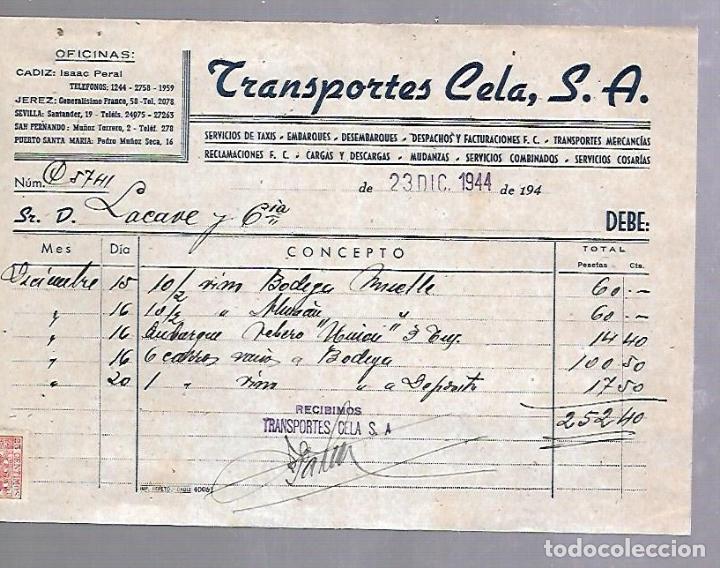 OFICINAS:
CADIZ: Isaac Peral
TELEFONOS: 1244 - 2758 - 1959
JEREZ: Generalísimo Franco, 58 - Tel. 2078
SEVILLA: Santander, 19 - Teléfs. 24975 - 27263
SAN FERNANDO: Muñoz Torrero, 2 - Teléf. 278
PUERTO SANTA MARIA: Pedro Muñoz Seca, 16
Transportes Cela, S. A.
SERVICIOS DE TAXIS - EMBARQUES - DESEMBARQUES - DESPACHOS Y FACTURACIONES F. C. - TRANSPORTES MERCANCÍAS
RECLAMACIONES F. C. - CARGAS Y DESCARGAS - MUDANZAS - SERVICIOS COMBINADOS - SERVICIOS COSARÍAS
Núm. 8741
de 23 DIC. 1944 de 194
Sr. D. Lacave y Cia
DEBE:
Mes Día CONCEPTO TOTAL
Pesetas Cts.
Diciembre 15 10/2 Bodega Muelle 60.-
" 16 10/2 " " 60.-
" 16 Embarque Velero 3 14 40
" 16 6 carros vacios a Bodega 100 50
" 20 1 " " a Deposito 17 50
252 40
RECIBIMOS
TRANSPORTES CELA S. A
todocoleccion
todocoleccion.net